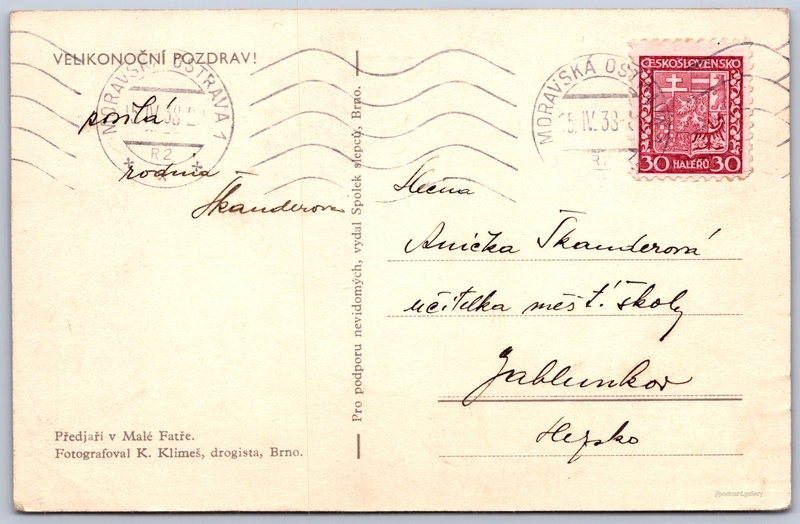 VELIKONOČNÍ POZDRAV!
posílá
rodina -
Škanderova
Předjaří v Malé Fatře.
Fotografoval K. Klimeš, drogista, Brno.
Pro podporu nevidomých, vydal Spolek slepců, Brno.
MORAVSKÁ OSTRAVA 1
15.IV.38
R2
MORAVSKÁ OST
15.IV.38
ČESKOSLOVENSKO
30 HALÉŘŮ 30
Slečna
Anička Škanderová
učitelka měšť. školy
Jablunkov
postcard.gallery